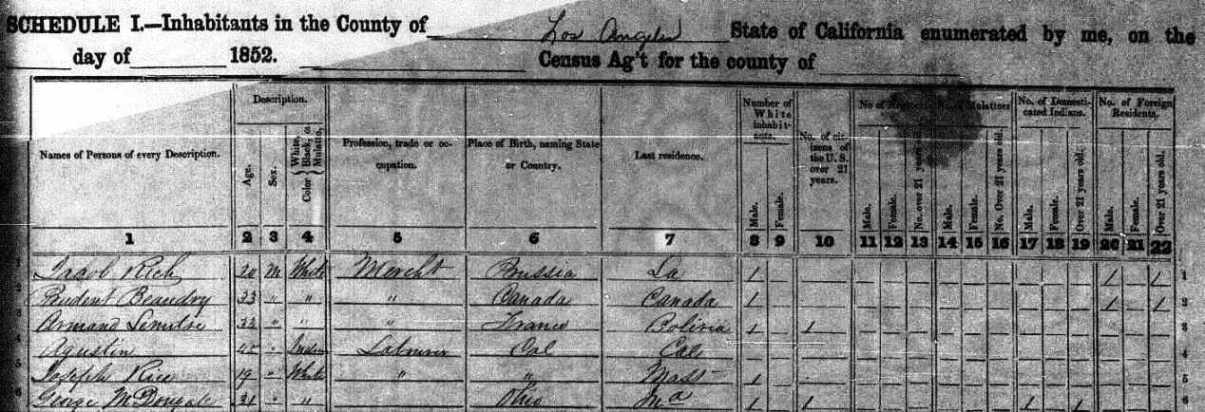 SCHEDULE I.—Inhabitants in the County of Los Angeles State of California enumerated by me, on the
day of 1852. Census Ag't for the county of
Names of Persons of every Description.
Description.
Age.
Sex.
Color White, Black, or Mulatto.
Profession, trade or occupation.
Place of Birth, naming State or Country.
Last residence.
Number of White inhabitants.
Male.
Female.
No. of citizens of the U.S. over 21 years.
No of
Male.
Female.
No. over 21 years old.
Mulattoes
Male.
Female.
No. Over 21 years old.
No. of Domesticated Indians.
Male.
Female.
Over 21 years old.
No. of Foreign Residents.
Male.
Female.
Over 21 years old.
1 2 3 4 5 6 7 8 9 10 11 12 13 14 15 16 17 18 19 20 21 22
1 Jacob Rich 20 M White Mercht Prussia La 1 1 1 1
2 Prudent Beaudry 33 " " " Canada Canada 1 1 1 2
3 Armand 32 " " " France Bolivia 1 1 3
4 Agustin " Indian Laborer Cal Cal
5 Joseph Rice 19 " White " " Mass 1 5
6 George McDougale 31 " " Ohio 1 1 1 1 6